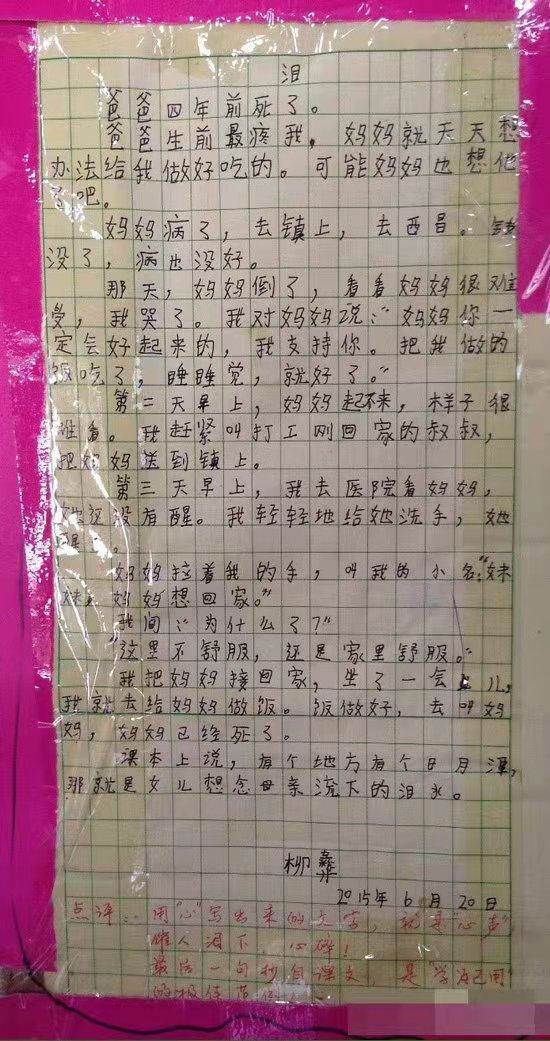 泪
爸爸四年前死了。
爸爸生前最疼我，妈妈就天天想
办法给我做好吃的。可能妈妈也想他
了吧。
妈妈病了，去镇上，去西昌。钱
没了，病也没好。
那天，妈妈倒了，看看妈妈很难
受，我哭了。我对妈妈说：“妈妈你一
定会好起来的，我支持你。把我做的
饭吃了，睡睡觉，就好了。”
第二天早上，妈妈起不来，样子很
难看。我赶紧叫打工刚回家的叔叔，
把妈妈送到镇上。
第三天早上，我去医院看妈妈，
她还没有醒。我轻轻地给她洗手，她
醒了。
妈妈拉着我的手，叫我的小名：“妹
妹，妈妈想回家。”
我问：“为什么了？”
“这里不舒服，还是家里舒服。”
我把妈妈接回家，坐了一会儿，
我就去给妈妈做饭。饭做好，去叫妈
妈，妈妈已经死了。
课本上说，有个地方有个日月潭，
那就是女儿想念母亲流下的泪水。
柳彝
2015年6月20日
点评：用“心”写出来的文字，就是“心声”
催人泪下，心碎！
最后一句抄自课文，是“学为己用”
的极佳范例